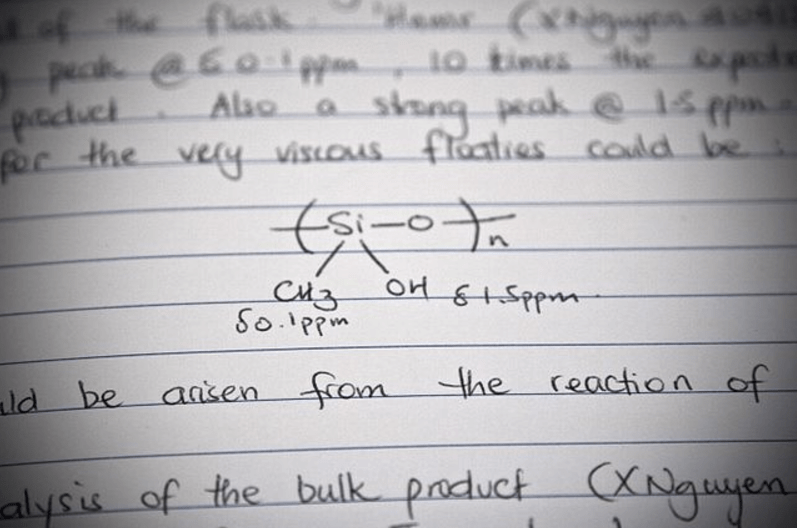 of the flask. 'Hnmr (XNguyen
peak @ δ 0.1ppm, 10 times the
product. Also a strong peak @ 1.5 ppm
for the very viscous floaties could be :
(Si-O)n
CH3 OH δ 1.5ppm
δ0.1ppm
be arisen from the reaction of
alysis of the bulk product (XNguyen